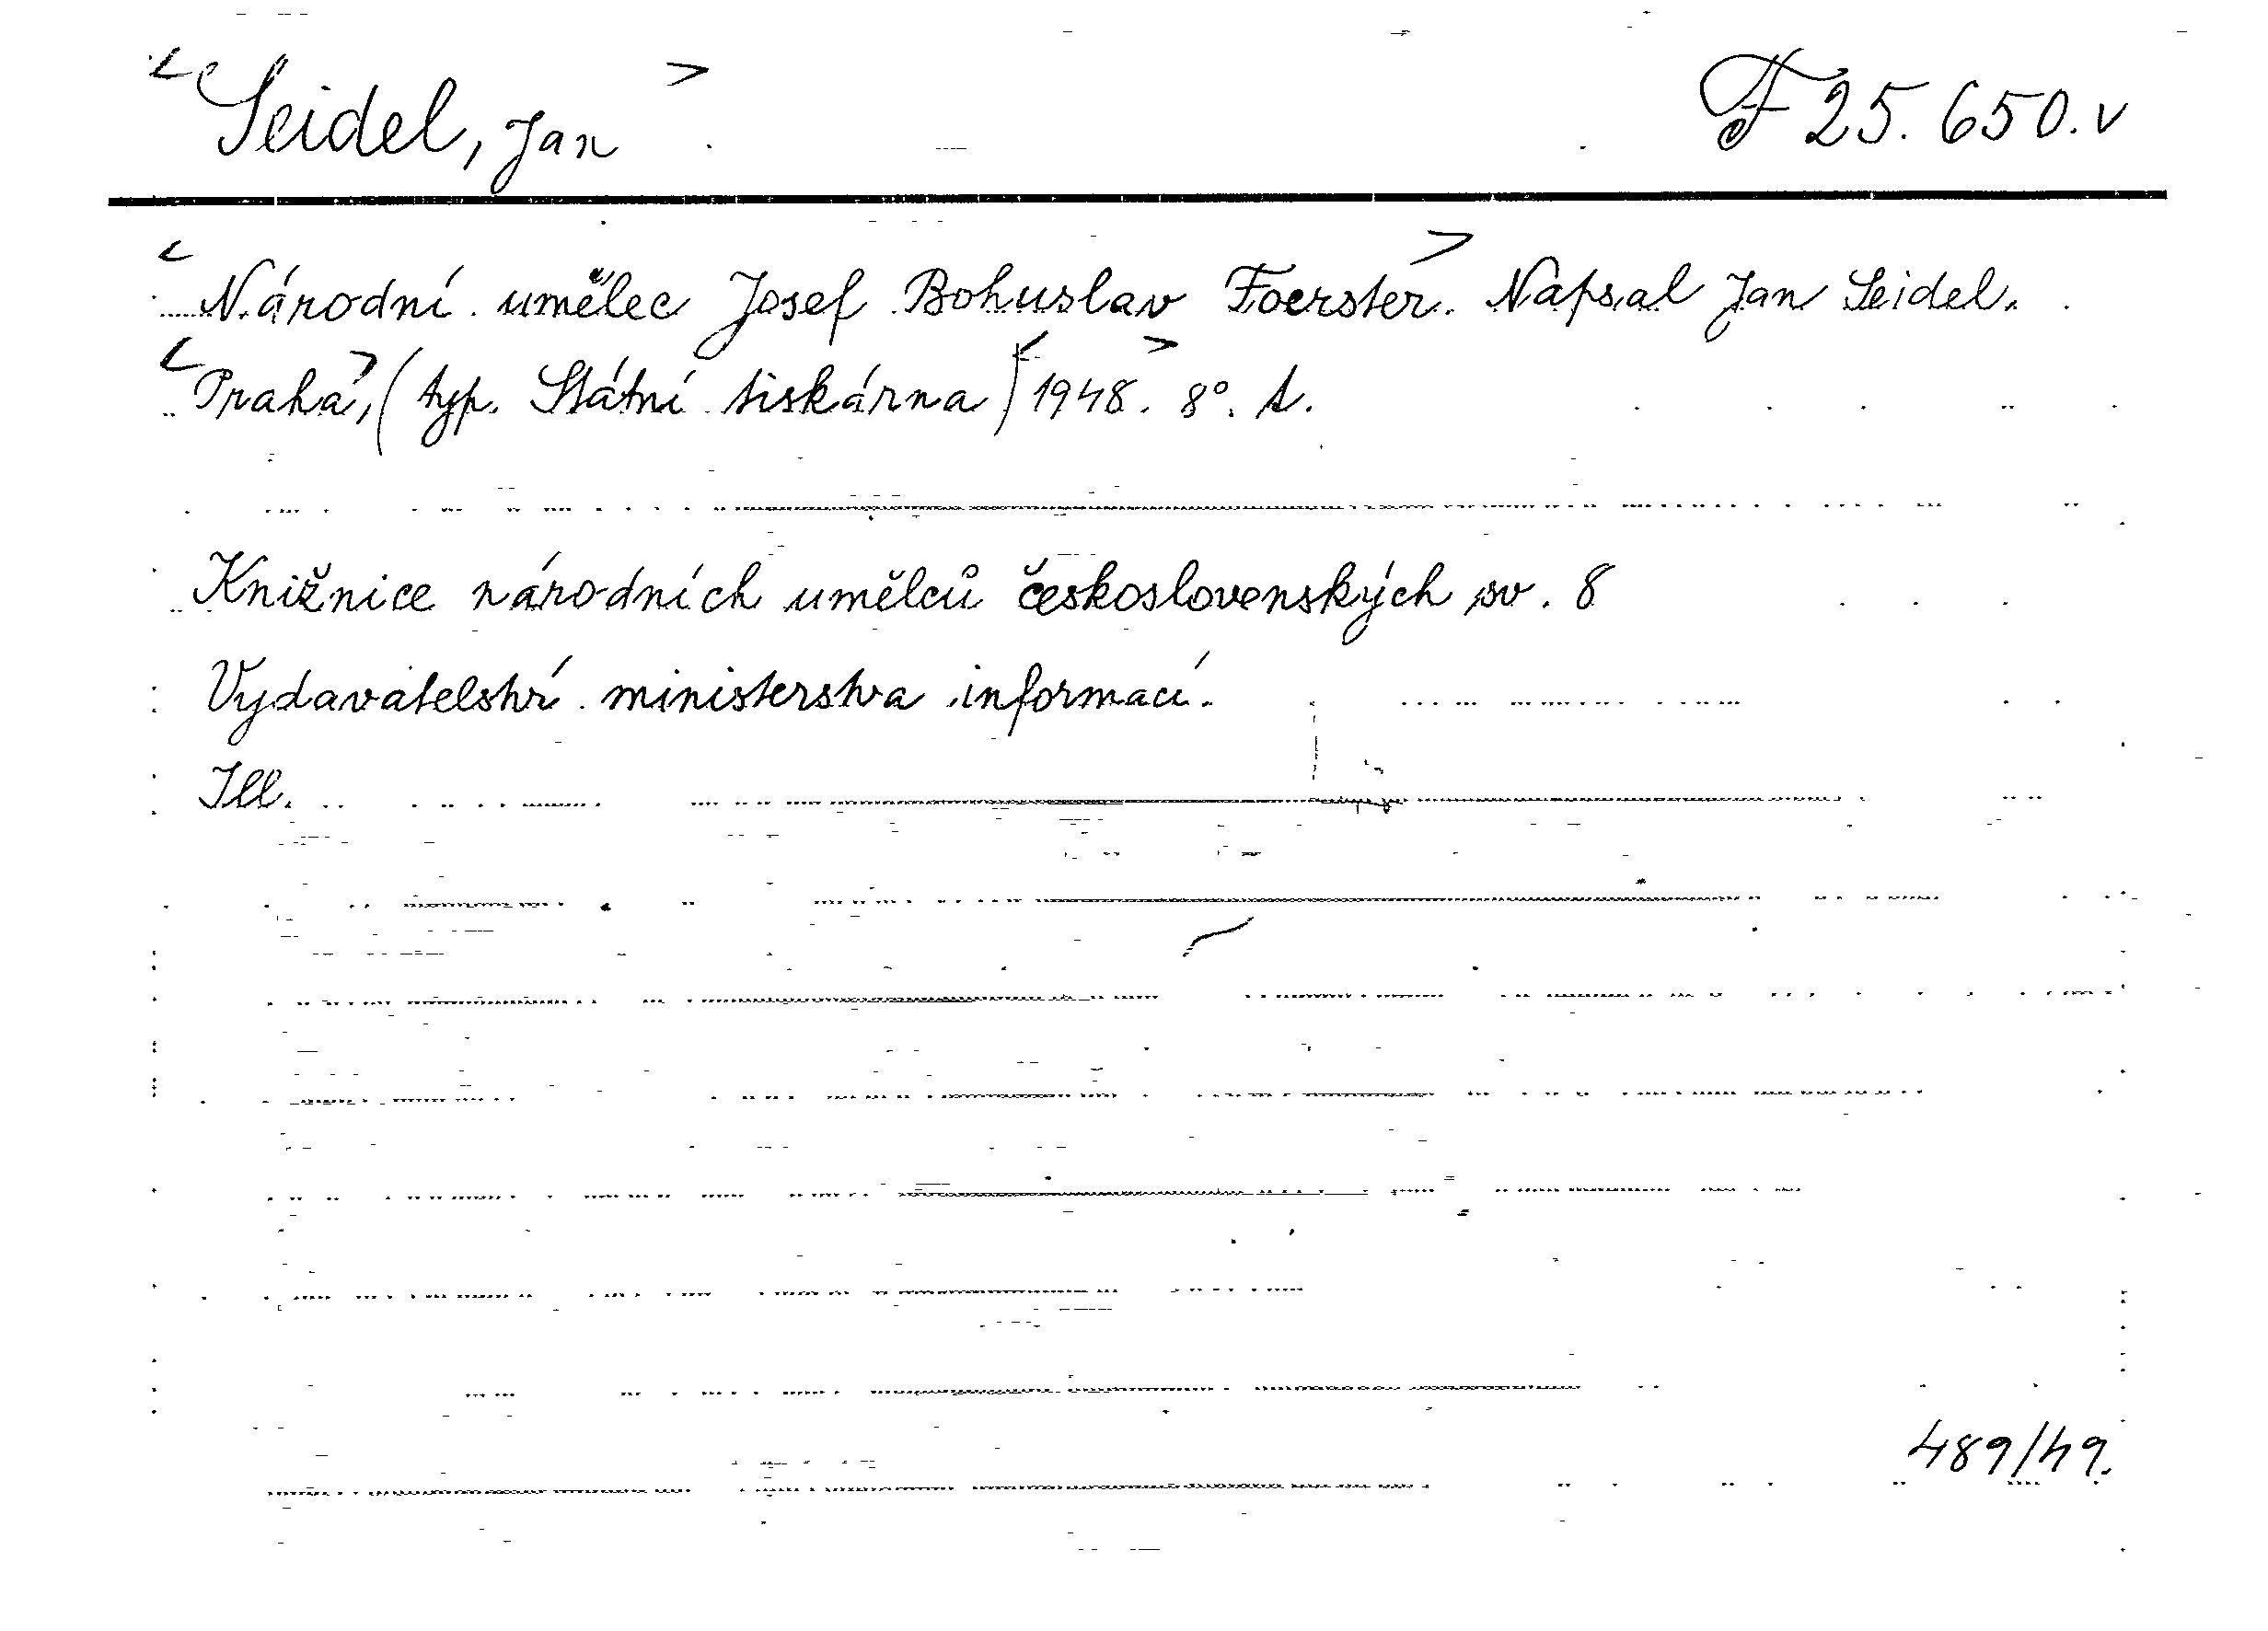 <Seidel, Jan> F 25.650.v
<Národní umělec Josef Bohuslav Foerster.> Napsal Jan Seidel.
<Praha>, (typ. Státní tiskárna) <1948>. 8°. A.
Knižnice národních umělců československých sv. 8
Vydavatelství ministerstva informací.
Ill.
489/49.